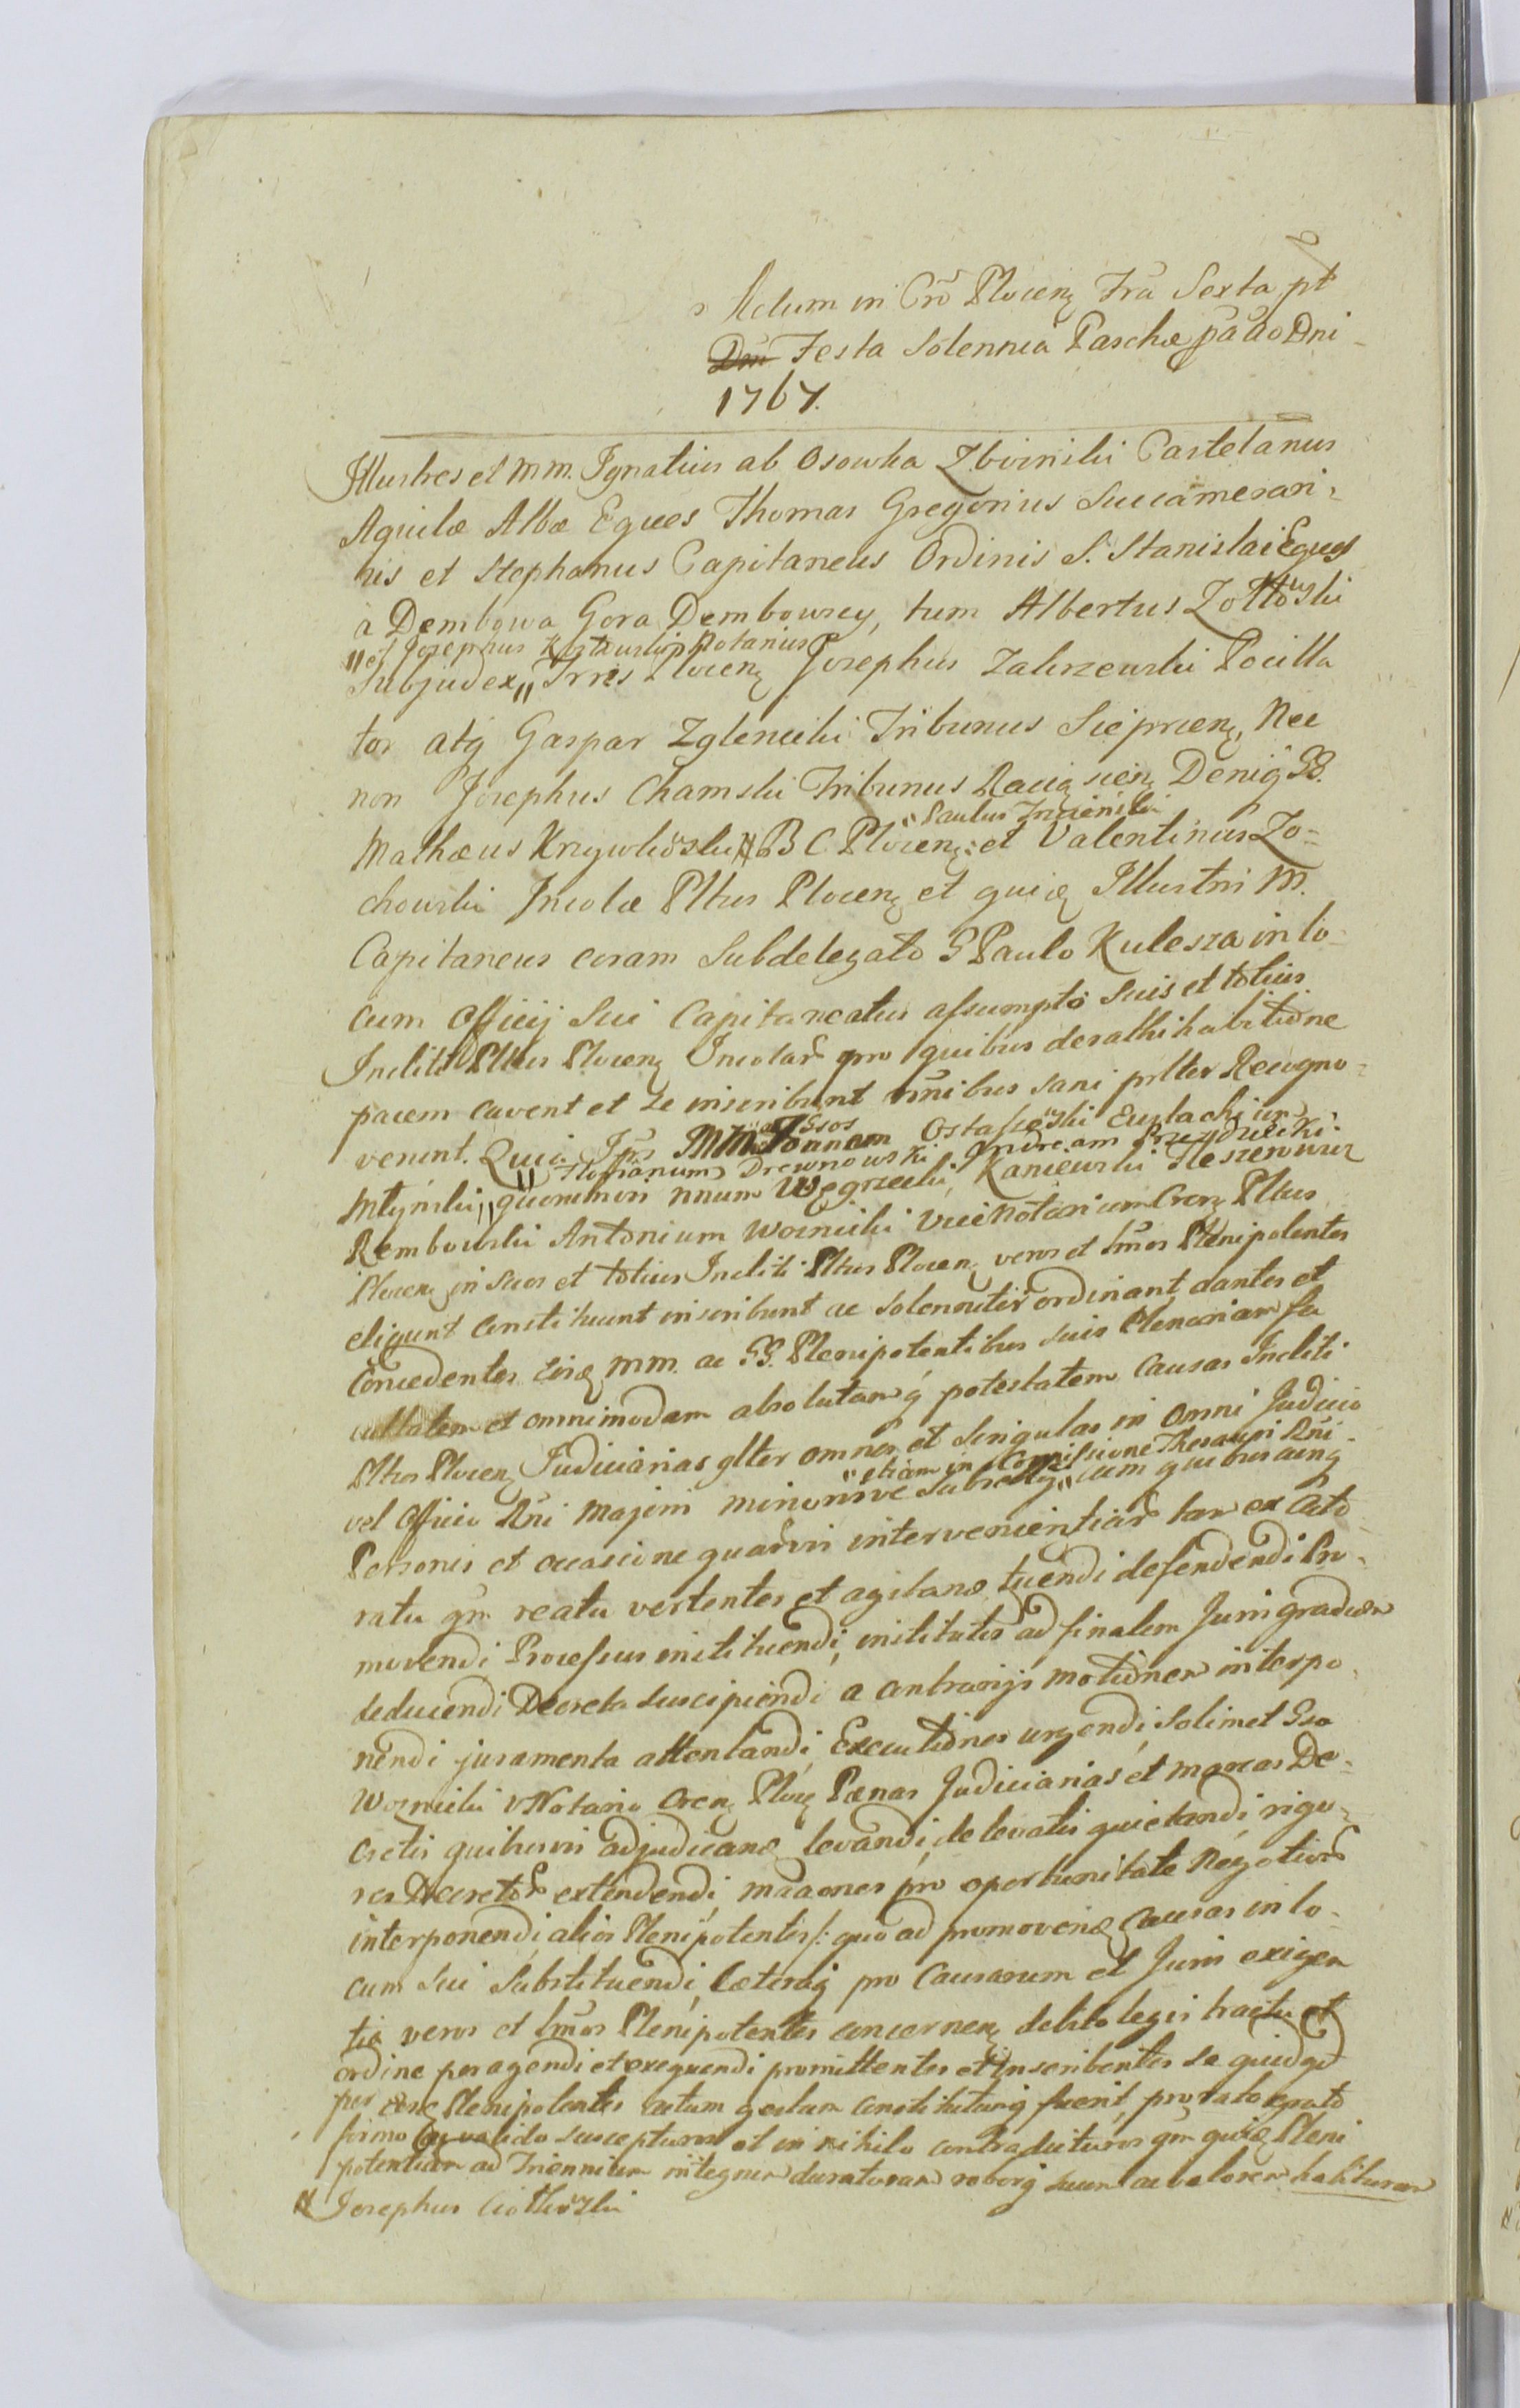 Actum in Crõ Plocenʒ Fra Sexta pt
Dm Festa Solennia Paschæ pã aõ Dni
1767.
Illustres et MM. Ignatius ab Osowka Zboinski Castelanus
Aquilæ Albæ Eques Thomas Gregorius Succamerari-
us et Stephanus Capitaneus Ordinis S. Stanislai Eques
à Dembowa Gora Dembowscy, tum Albertus Zołtowski
"et Josephus Kostowski Notarius
Subjudex" Trris Plocenʒ Josephus Zakrzewski Pocilla
tor atq Gaspar Zglenicki Tribunus Sieprcenʒ, Nec
non Josephus Chamski Tribunus Raciąscenʒ Deniq GG.
"Paulus
Mathæus Krzywkowski # B C Plocenʒ: et Valentinus Zo-
chowski Incolæ Pltus Plocenʒ et quiʒ Illustri M.
Capitaneus coram Subdelegato G Paulo Kulesza in lo-
cum Officij Sui Capitaneatus assumpto Suis et totius
Incliti Pltus Plocenʒ Incolar pro quibus de rathihabitione
pacem cavent et se inscribunt omnibus sani pltter Recogno-
verunt. Quia Ipsi MM ac GGsos Joannem Ostaszewski Eustachium
"Florianum Drewnowski Andream Przeradzcki
Młynski" quorumvis unum Węgrzecki, Kaniewski Fleszerowicz
Rembowski Antonium Woznicki ViceNotarium Crenʒ Pltus
Plocenʒ in Suos et totius Incliti Pltus Plocenʒ veros et lmos Plenipotentes
eligunt constituunt inscribunt ac solenniter ordinant dantes et
Concedentes eisʒ MM. ac GG. Plenipotentibus suis Plenariam fa
cultatem et omnimodam absolutamq potestatem Causas Incliti
Pltus Plocenʒ Judiciarias gltter omnes et singulas in omni Judicio
"etiam in Comissione Thesauri Rni
vel Officio Rni Majoris minorisve Subsellij" cum quibusvis
Personis et occasione quarvis intervenientiar tam ex Acto
ratu qm reatu vertentes et agitanʒ tuendi defendendi Pro-
movendi Processus instituendi, institutis ad finalem Juris gradum
deducendi Decreta suscipiendi a contrarijs motionem interpo-
nendi juramenta attentandi, Executiones urgendi, solimet Gso
Woznicki VNotario Crenʒ Plocʒ Pænas Judiciarias et marcas De-
cretis quibusvis adjudicanʒ levandi, de levatis quietandi, rigo-
res Decretor extendendi, maaones pro oportunitate Negotior
interponendi, alios Plenipotentes /: quo ad promovenʒ Causas in lo-
cum sui Substituendi, Cæteraq pro Causarum et Juris exigen
tia veros et lmos Plenipotentes concernenʒ debito legis tractu et
ordine peragendi et exequendi promittentes et Inscribentes se quidqd
per eosʒ Plenipotentes actum gestum constitutumq fuerit, pro rato grato
firmo ac valido suscepturos et in nihilo contradicturos qm quiʒ Pleni
potentiam ad Triennium integrum duraturam roborq suum ac valorem habituram
# Josephus Ciołkowski